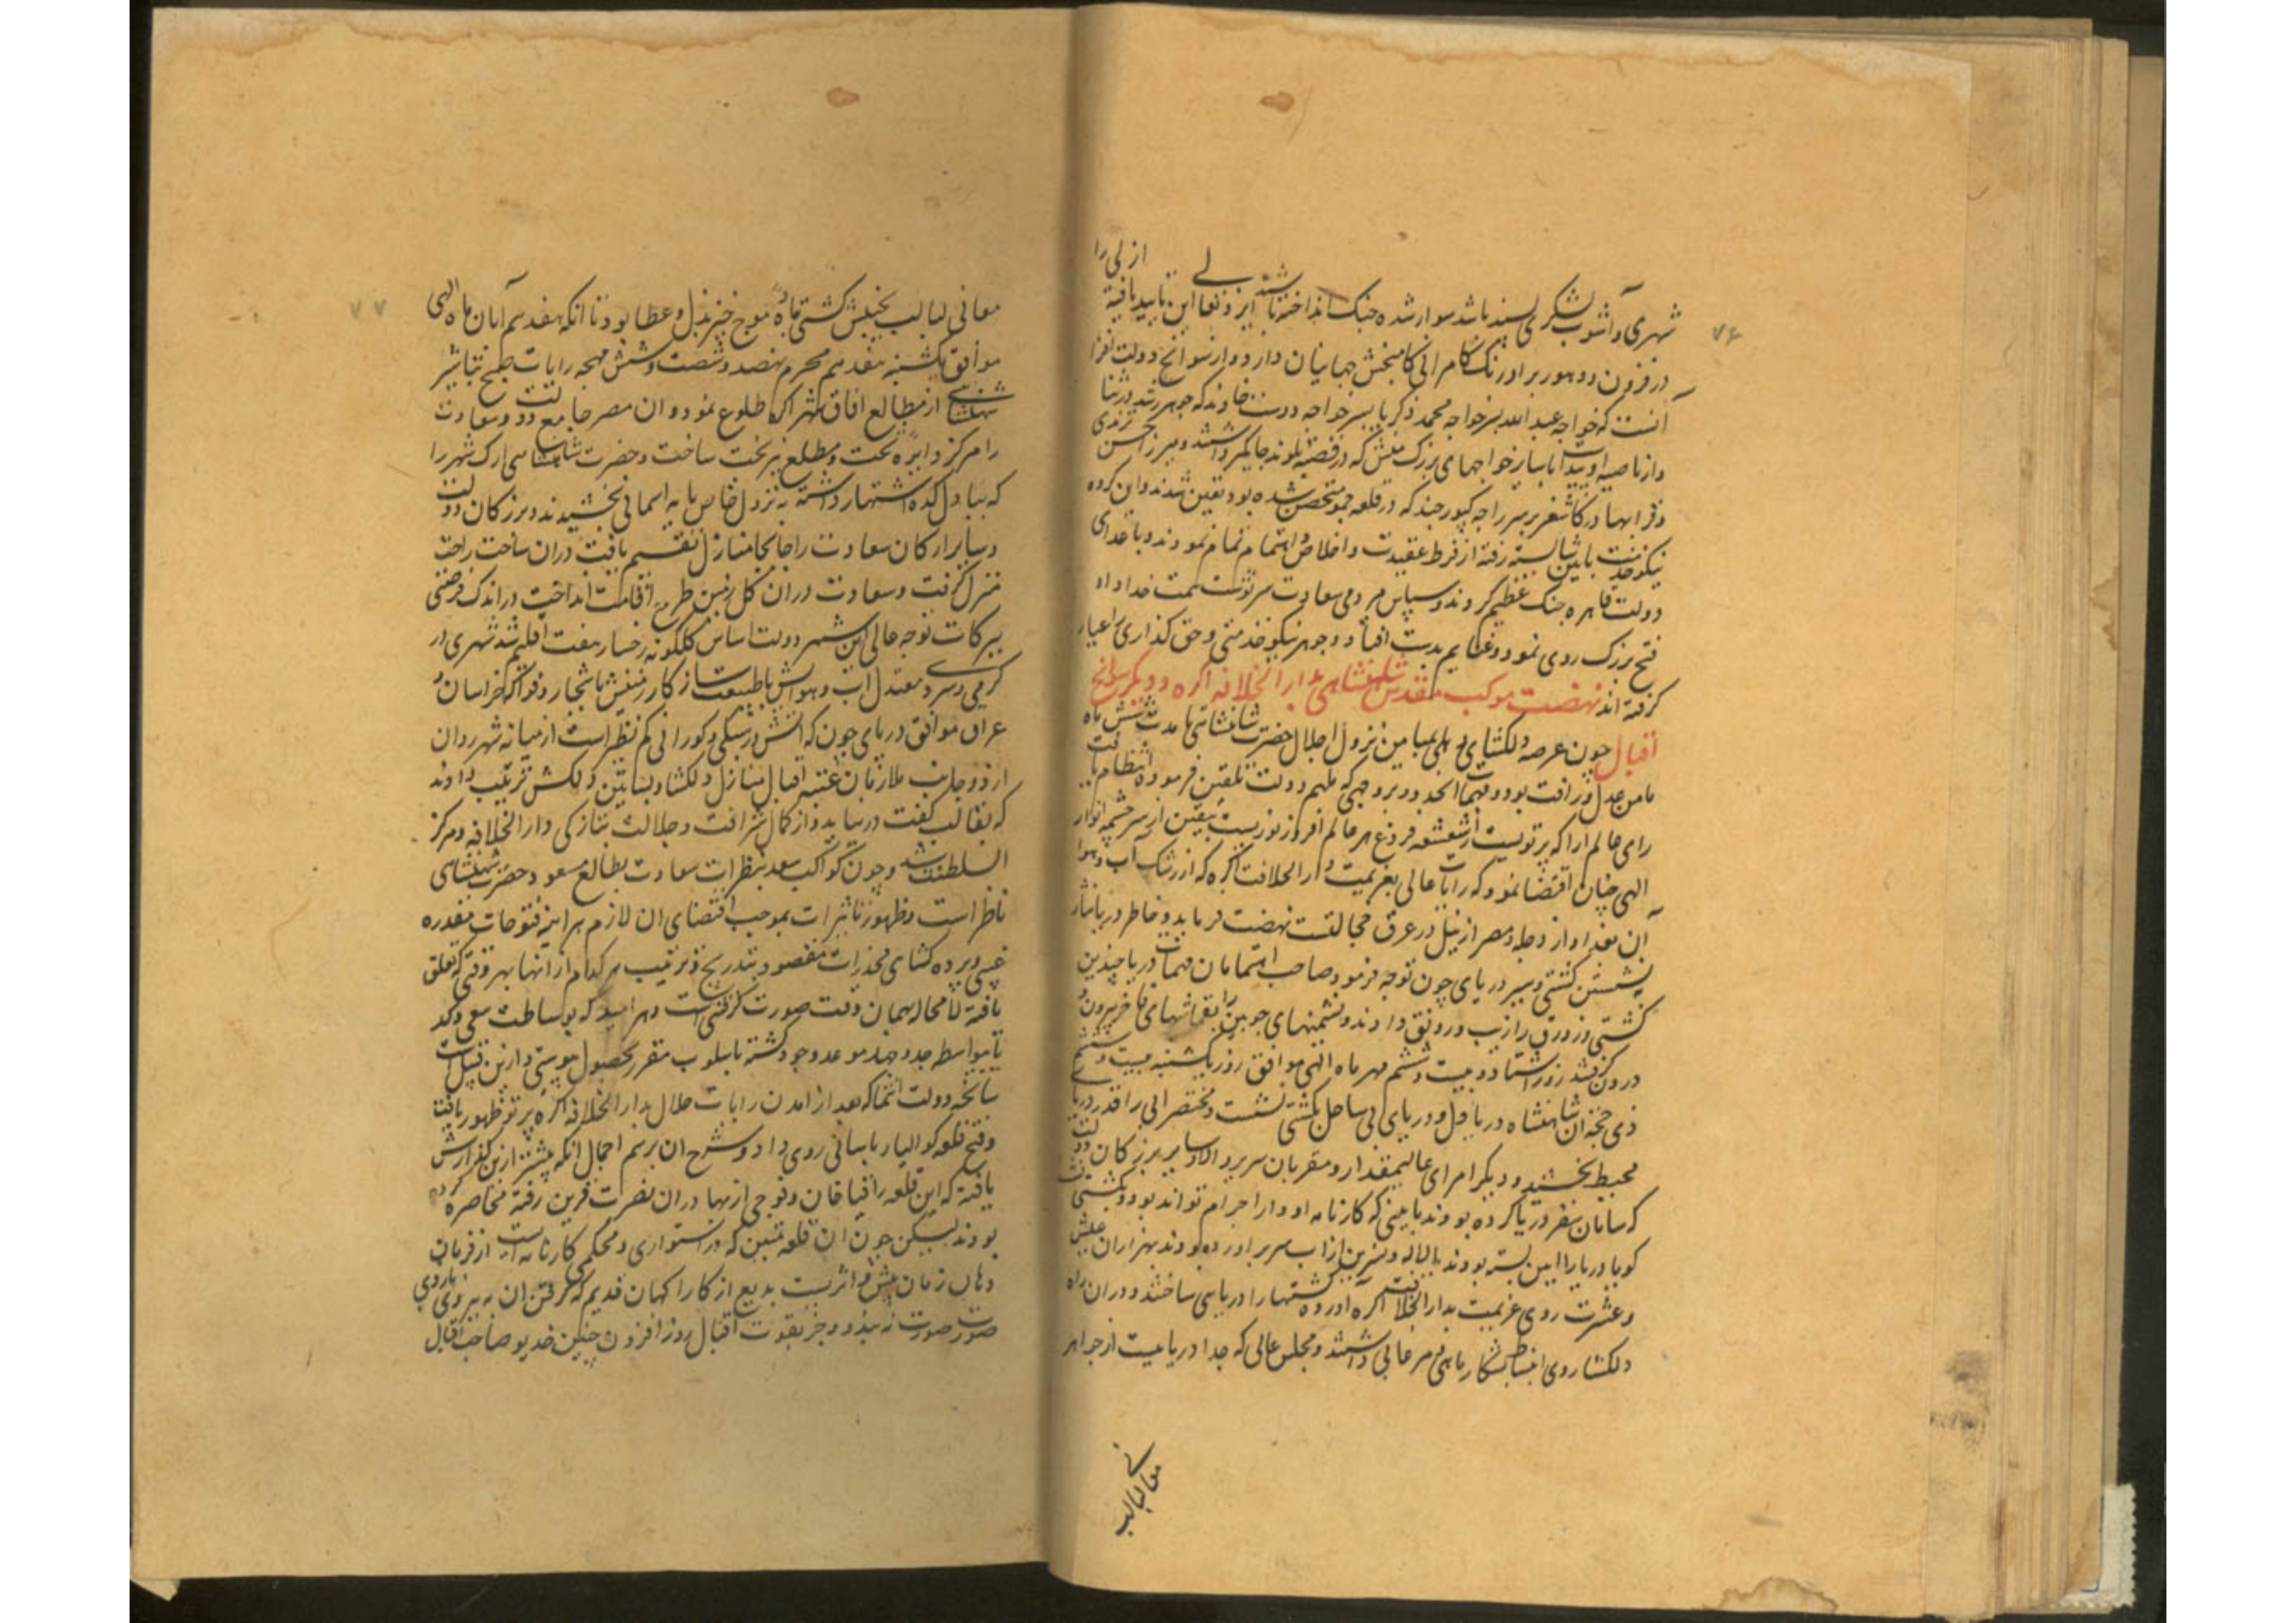 ازلی را
شهری و آشوب لشکری پسند باشد سوار شده جنک انداخته باشد بلے ایزد تعالی این تایید یافتهٔ
در فزون دو هور بر اورنک کامرانی کامبخش جهانیان دارد و از سوانح دولت افزا
آنست که خواجه عبد الله پسر خواجه محمد ذکریا پسر خواجه دوست خاوند که جوهر رشد و رشنا
واز ناصیه او پیدا با سایر خواجهای بزرک منش که در قصبه پلوند جایگیر داشتند و میرزا حسن ترندی
وقرا بهادر کاشغر بر سر راجه کپور چند که در قلعه جمو متحصن شده بود تعین شدند و این کروه
نیکو خدمت باین شایسته رفته از فرط عقیدت و اخلاص اهتمام تمام نمودند و با اعدای
دولت قاهره جنک عظیم کردند و سپاس مردمی سعادت سرنوشت همت خداداد
فتح بزرک روی نمود و غنایم بدست افتاد و جوهر نیکو خدمتی و حق کذاری را عیار
کرفته اند نهضت موکب مقدس شاهنشاهی بدار الخلافه اکره و دیکر سوانح
اقبال چون عرصه دلکشای دهلی بمیامن نزول اجلال حضرت شاهنشاهی مدت شش ماه
مامن عدل و رافت بود و مهمات انحدود بر وجهی که ملهم دولت تلقین فرموده انتظام یافت
رای عالم ارا که پرتویست از شعشعه فروغ مهر عالم افروز نوریست یقین از سرچشمه انوار
الهی چنان اقتضا نمود که رایات عالی بعزیمت دار الخلافت اکره که از رشک آب و هوا
آن بغداد از دجله و مصر از نیل در عرق خجالتست نهضت فرماید و خاطر دریا نثار
به نشستن کشتی و سیر دریای جون توجه فرمود صاحب اهتمامان مهمات دریا چندین
کشتی و زورق را زیب و رونق دادند و نشیمنهای چوبین را بقماشهای فاخر بیرون و
درون کرفتند روز اشتاد و بیست و ششم مهر ماه الهی موافق روز یکشنبه بیست و ششم
ذی حجه ان شاهنشاه دریا دل و دریای بی ساحل بکشتی نشست و مختصر ابی را قدر دریای
محیط بخشید و دیکر امرای عالیمقدار و مقربان سریر والا و سایر بزرکان دولت
که سامان سفر دریا کرده بودند بایینی که کارنامه ادوار اجرام تواند بود و بکشتی نشستند
کویا دریا را ایین بسته بودند یا لاله و نسرین از اب سر بر اورده بودند بهزاران عیش
و عشرت روی عزیمت بدار الخلافت اکره آورده کشتیها را دریا سی ساختند و دران راه
دلکشا روی انبساط بشکار ماهی و مرغابی داشتند و مجلس عالی که جدا دریاییست از جواهر
معانی لبالب
۷۶
۷۷
معانی لبالب بخشش کشتی باده موج خیز بذل و عطا بود تا انکه هفدهم آبان ماه الهی
موافق یکشنبه هفدهم محرم نهصد و شصت و شش مهجه رایات صبح تباشیر
شهنشاهی از مطالع افاق شهر اکره طلوع نمود و ان مصر جامع دولت و سعادت
را مرکز دایره تخت و مطلع نیر بخت ساخت و حضرت شاهنشاهی ارک شهر را
که ببادل کده اشتهار داشته به نزول خاص پایه اسمانی بخشیدند و بزرکان دولت
و سایر ارکان سعادت را جابجا منازل تقسیم یافت دران ساحت راحت
منزل کرفت و سعادت دران کل زمین طرح اقامت انداخت در اندک فرصتی
ببرکات توجه عالی این شهر دولت اساس کلکونه رخسار هفت اقلیم شد شهری در
کرمی و سردی معتدل اب و هوایش با طبیعت سازکار زمینش باشجار و فواکه خراسان و
عراق موافق دریای جون که ابش در سبکی و کوارانی کم نظیر است از میانه شهر روان
از دو جانب ملازمان عتبه اقبال منازل دلکشا و بساتین دلکش ترتیب دادند
که بقالب کفت در نیاید و از کمال شرافت و جلالت بتازکی دار الخلافه و مرکز
السلطنت شد و چون کواکب سعد بنظرات سعادت بطالع مسعود حضرت شهنشاهی
ناظر است و ظهور تاثیرات بموجب اقتضای ان لازم هر اینه فتوحات مقدره
غیبی و پرده کشای مخدرات مقصود بتدریج و ترتیب هر کدام از انها بهر وقتی که تعلق
یافته لا محاله همان وقت صورت کرفتنی است و هر امید که بوساطت سعی و کد
یا بواسطه جد و جهد موعد وجود کشته باسلوب مقرر بحصول پیوستنی و ازین قبیل است
سانحه دولت انتما که بعد از امدن رایات جلال بدار الخلافه اکره پرتو ظهور یافته
و فتح قلعه کوالیار باسانی روی داد و شرح ان برسم اجمال انکه پیشتر ازین کذارش
یافته که این قلعه را قیا خان و فوجی از بهادران نصرت قرین رفته محاصره کرده
بودند لیکن چون ان قلعه متین که در استواری و محکمی کارنامه ایست از فرمان
دهان زمان پیش و اثریست بدیع از کار اکهان قدیم که کرفتن ان به نیروی بازوی
صورت صورت نه بندد و جز بقوت اقبال روز افزون چنین خدیو صاحب اقبال